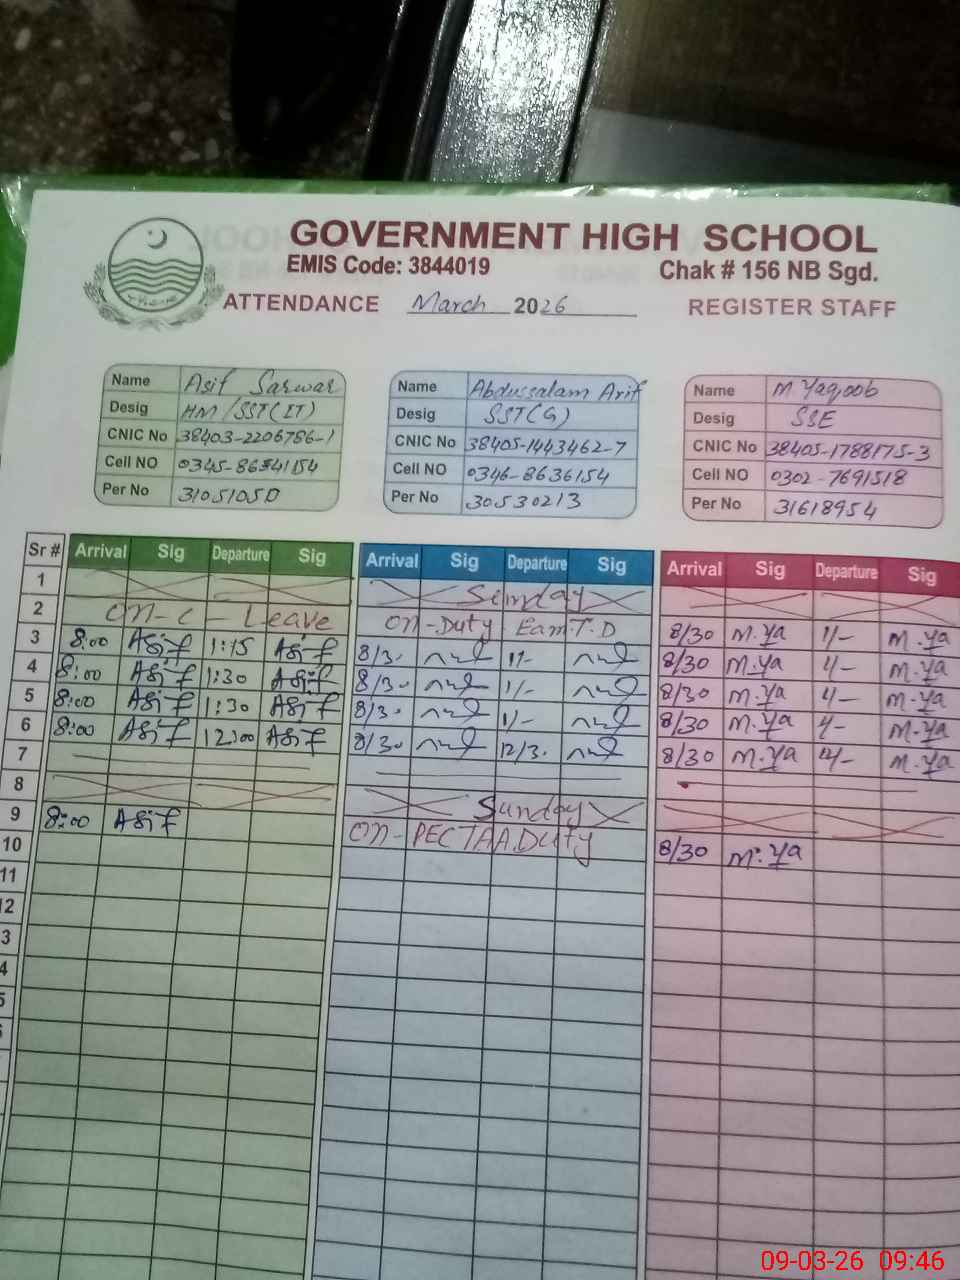 GOVERNMENT HIGH SCHOOL
EMIS Code: 3844019 Chak # 156 NB Sgd.
ATTENDANCE March 2026 REGISTER STAFF
Name Asif Sarwar Name Abdussalam Arif Name M Yaqoob
Desig HM/SST(IT) Desig SST(G) Desig SSE
CNIC No 38403-2206786-1 CNIC No 38405-1443462-7 CNIC No 38405-1788175-3
Cell NO Cell NO 0346-8636154 Cell NO 0302-7691518
Per No 31051050 Per No 30530213 Per No 31618954
Sr # Arrival Sig Departure Sig Arrival Sig Departure Sig Arrival Sig Departure Sig
1 Sunday
2 On-C-Leave On-Duty Eam T.D 8/30 M.Ya 1/- M.Ya
3 8:00 Asif 1:15 Asif 8/3. 1/- 8/30 M.Ya 1/- M.Ya
4 8:00 Asif 1:30 Asif 8/30 1/- 8/30 M.Ya 1/- M.Ya
5 8:00 Asif 1:30 Asif 8/30 1/- 8/30 M.Ya 1/- M.Ya
6 8:00 Asif 12:00 Asif 8/30 12/3. 8/30 M.Ya M.Ya
7
8 Sunday
9 8:00 Asif On-PECTAA.Duty 8/30 M.Ya
10
11
12
3
4
5
09-03-26 09:46